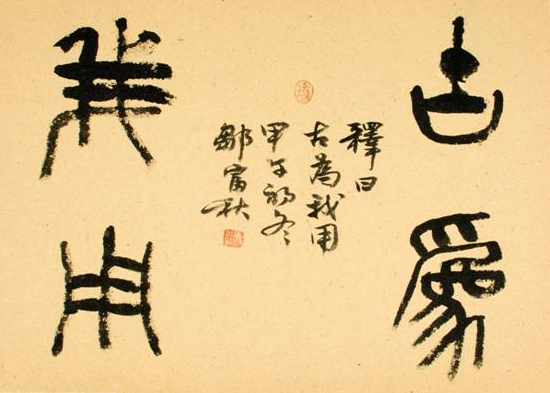 古為
我用
釋曰
古為我用
甲午初冬
鄒富秋